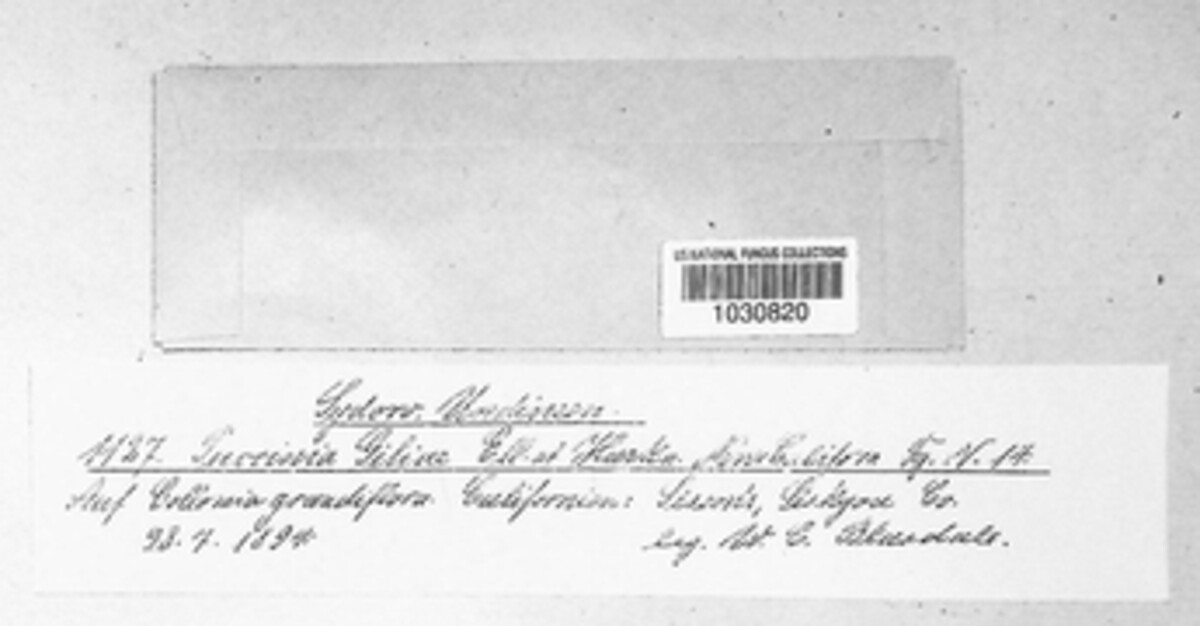 U.S. NATIONAL FUNGUS COLLECTIONS
1030820
Sydow. Uredineen.
1127. Puccinia Giliae Ell. et Harkn.
Auf Collomia grandiflora. Californien: Sissons, Siskyou Co.
23. 7. 1894 leg. W. C. Blasdale.